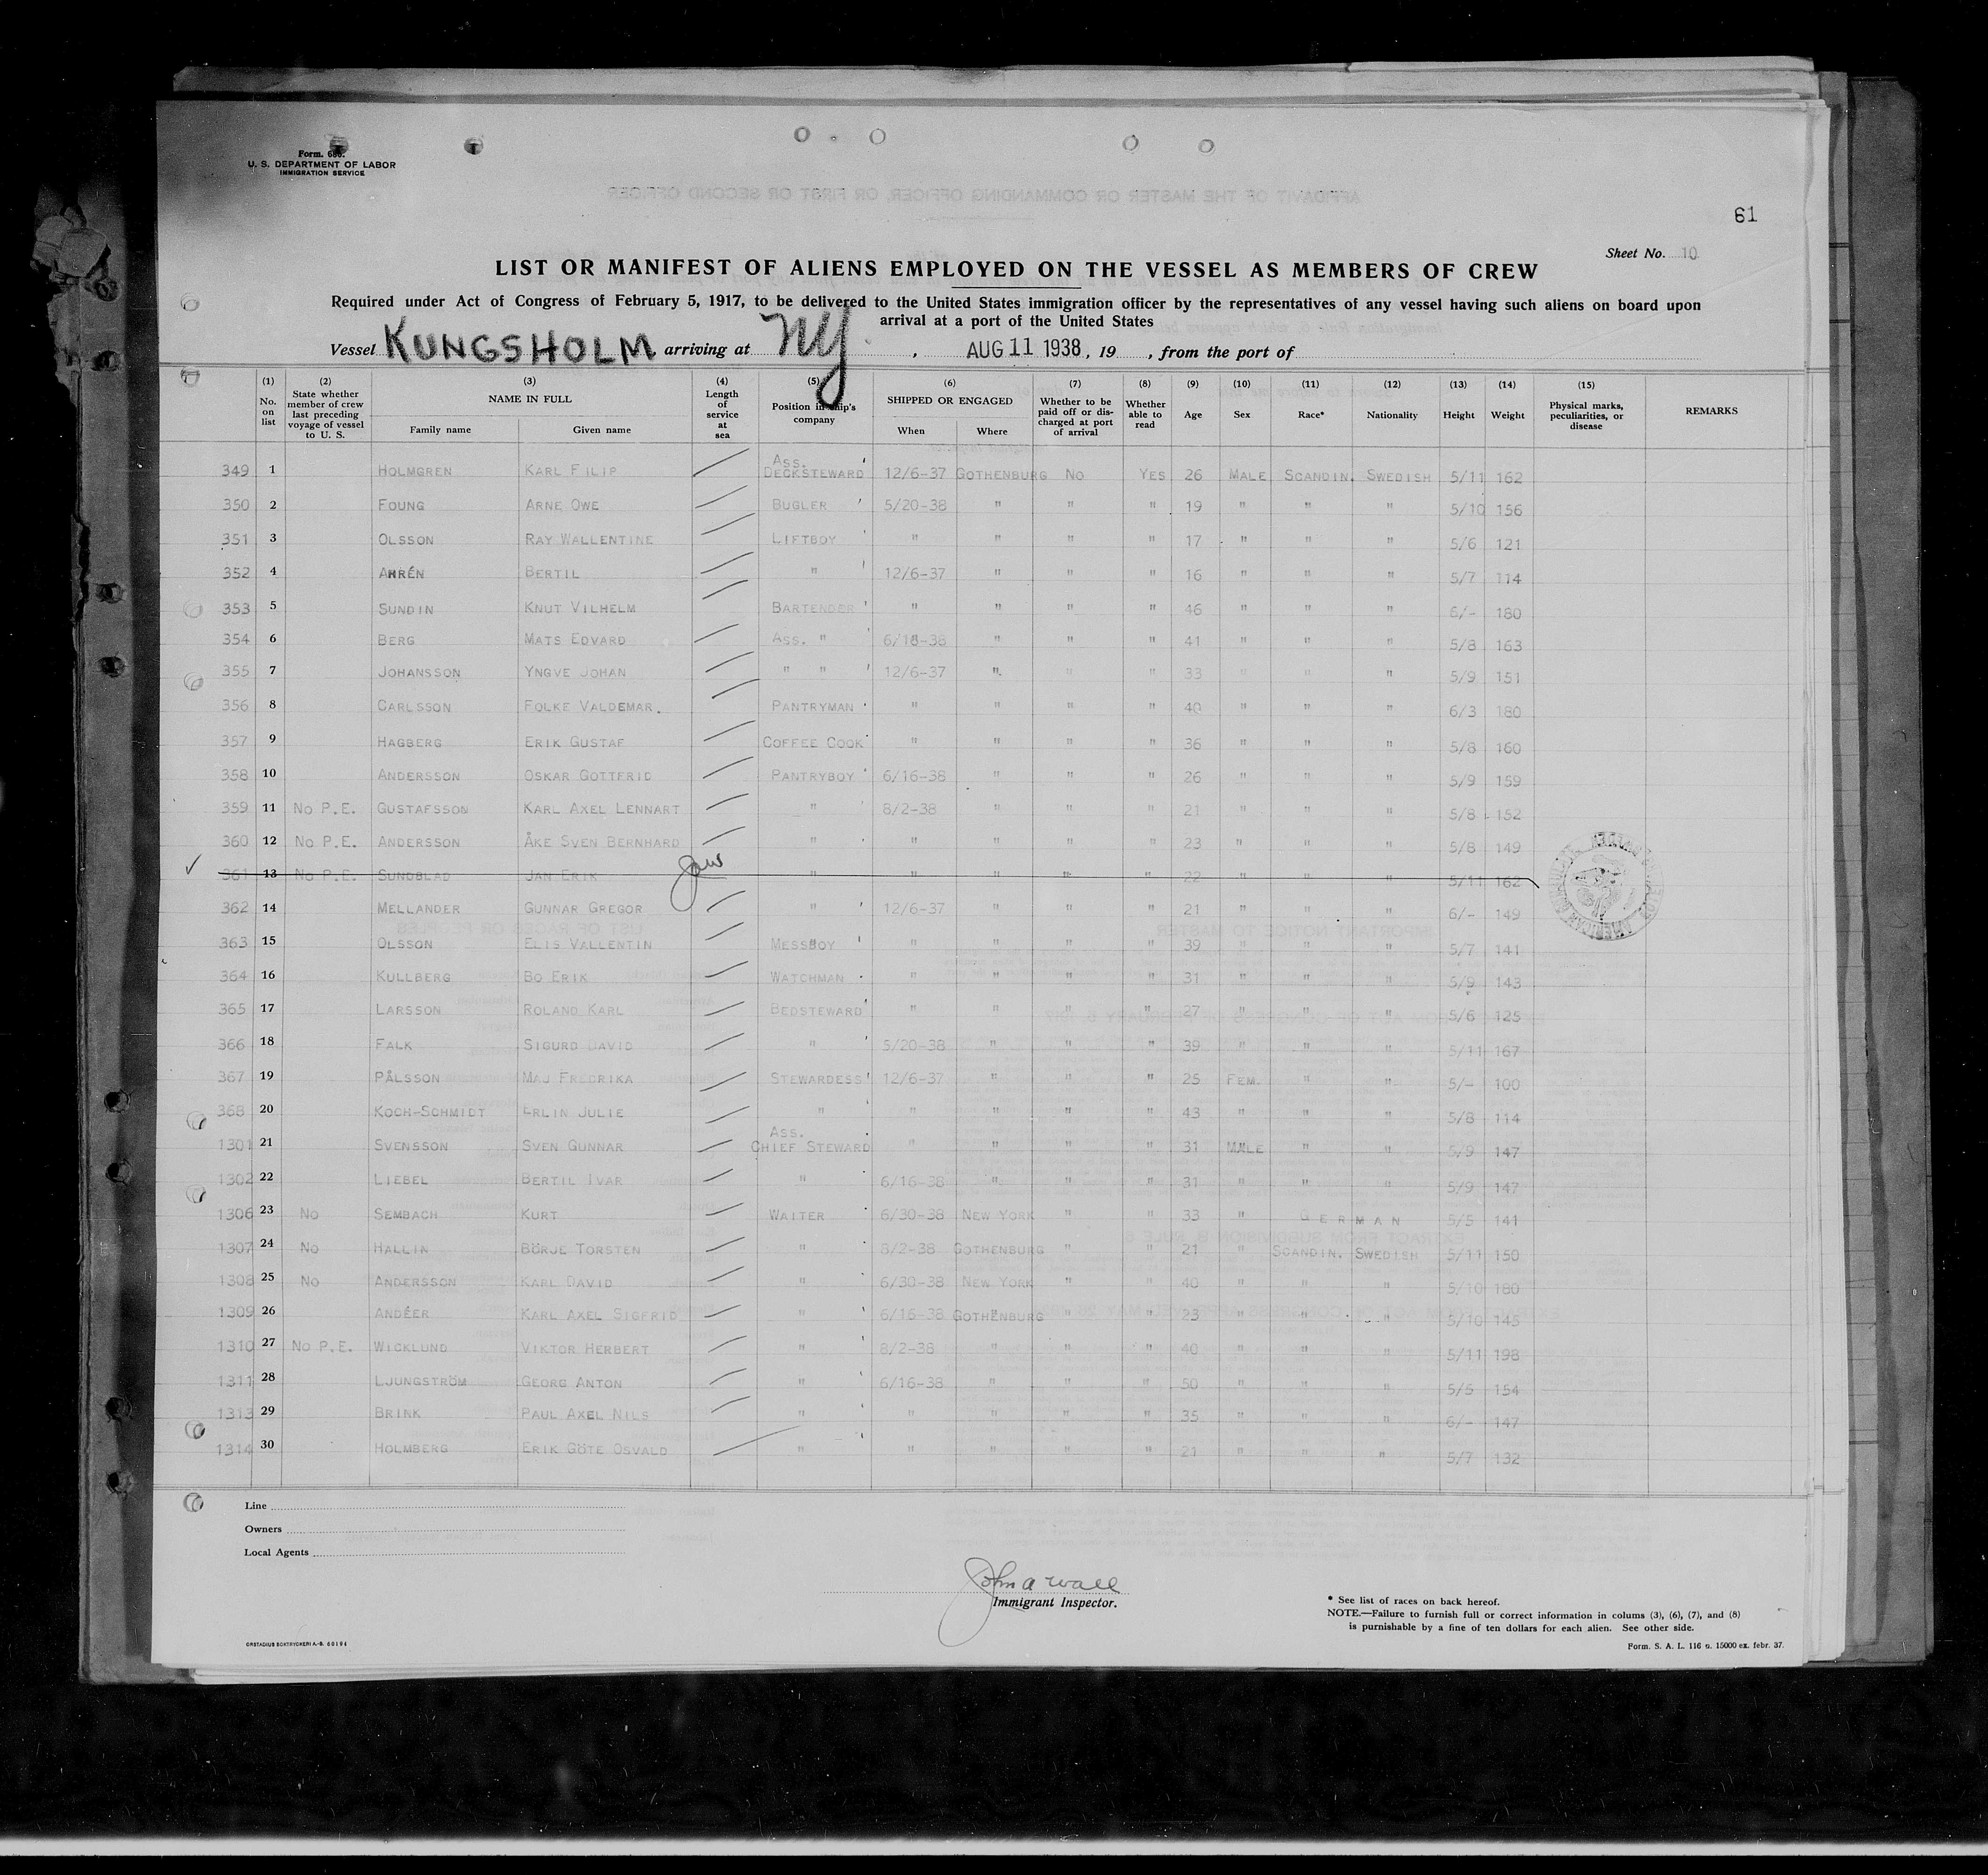 Form. 680.
U. S. DEPARTMENT OF LABOR
IMMIGRATION SERVICE
61
Sheet No. 10
LIST OR MANIFEST OF ALIENS EMPLOYED ON THE VESSEL AS MEMBERS OF CREW
Required under Act of Congress of February 5, 1917, to be delivered to the United States immigration officer by the representatives of any vessel having such aliens on board upon
arrival at a port of the United States
Vessel KUNGSHOLM arriving at NY. , AUG 11 1938, 19 , from the port of
(1) No. on list (2) State whether member of crew last preceding voyage of vessel to U. S. (3) NAME IN FULL Family name Given name (4) Length of service at sea (5) Position in ship's company (6) SHIPPED OR ENGAGED When Where (7) Whether to be paid off or discharged at port of arrival (8) Whether able to read (9) Age (10) Sex (11) Race* (12) Nationality (13) Height (14) Weight (15) Physical marks, peculiarities, or disease REMARKS
349 1 HOLMGREN KARL FILIP ASS. DECKSTEWARD 12/6-37 GOTHENBURG NO YES 26 MALE SCANDIN. SWEDISH 5/11 162
350 2 FOUNG ARNE OWE BUGLER 5/20-38 " " " 19 " " " 5/10 156
351 3 OLSSON RAY WALLENTINE LIFTBOY " " " " 17 " " " 5/6 121
352 4 AHRÉN BERTIL " 12/6-37 " " " 16 " " " 5/7 114
353 5 SUNDIN KNUT VILHELM BARTENDER " " " " 46 " " " 6/- 180
354 6 BERG MATS EDVARD ASS. " 6/16-38 " " " 41 " " " 5/8 163
355 7 JOHANSSON YNGVE JOHAN " " 12/6-37 " " " 33 " " " 5/9 151
356 8 CARLSSON FOLKE VALDEMAR. PANTRYMAN " " " " 40 " " " 6/3 180
357 9 HAGBERG ERIK GUSTAF COFFEE COOK " " " " 36 " " " 5/8 160
358 10 ANDERSSON OSKAR GOTTFRID PANTRYBOY 6/16-38 " " " 26 " " " 5/9 159
359 11 NO P.E. GUSTAFSSON KARL AXEL LENNART " 8/2-38 " " " 21 " " " 5/8 152
360 12 NO P.E. ANDERSSON ÅKE SVEN BERNHARD " " " " " 23 " " " 5/8 149
361 13 NO P.E. SUNDBLAD JAN ERIK " " " " " 22 " " " 5/11 162
362 14 MELLANDER GUNNAR GREGOR " 12/6-37 " " " 21 " " " 6/- 149
363 15 OLSSON ELIS VALLENTIN MESSBOY " " " " 39 " " " 5/7 141
364 16 KULLBERG BO ERIK WATCHMAN " " " " 31 " " " 5/9 143
365 17 LARSSON ROLAND KARL BEDSTEWARD " " " " 27 " " " 5/6 125
366 18 FALK SIGURD DAVID " 5/20-38 " " " 39 " " " 5/11 167
367 19 PÅLSSON MAJ FREDRIKA STEWARDESS 12/6-37 " " " 25 FEM. " " 5/- 100
368 20 KOCH-SCHMIDT ERLIN JULIE " " " " " 43 " " " 5/8 114
1301 21 SVENSSON SVEN GUNNAR ASS. CHIEF STEWARD " " " " 31 MALE " " 5/9 147
1302 22 LIEBEL BERTIL IVAR " 6/16-38 " " " 31 " " " 5/9 147
1306 23 NO SEMBACH KURT WAITER 6/30-38 NEW YORK " " 33 " GERMAN 5/5 141
1307 24 NO HALLIN BÖRJE TORSTEN " 8/2-38 GOTHENBURG " " 21 " SCANDIN. SWEDISH 5/11 150
1308 25 NO ANDERSSON KARL DAVID " 6/30-38 NEW YORK " " 40 " " " 5/10 180
1309 26 ANDÉER KARL AXEL SIGFRID " 6/16-38 GOTHENBURG " " 23 " " " 5/10 145
1310 27 NO P.E. WICKLUND VIKTOR HERBERT " 8/2-38 " " " 40 " " " 5/11 198
1311 28 LJUNGSTRÖM GEORG ANTON " 6/16-38 " " " 50 " " " 5/5 154
1313 29 BRINK PAUL AXEL NILS " " " " " 35 " " " 6/- 147
1314 30 HOLMBERG ERIK GÖTE OSVALD " " " " " 21 " " " 5/7 132
Line
Owners
Local Agents
John A Wall
Immigrant Inspector.
* See list of races on back hereof.
NOTE.—Failure to furnish full or correct information in colums (3), (6), (7), and (8)
is punishable by a fine of ten dollars for each alien. See other side.
ORSTADIUS BOKTRYCKERI A.-B. 60194
Form. S. A. L. 116 a. 15000 ex. febr. 37.